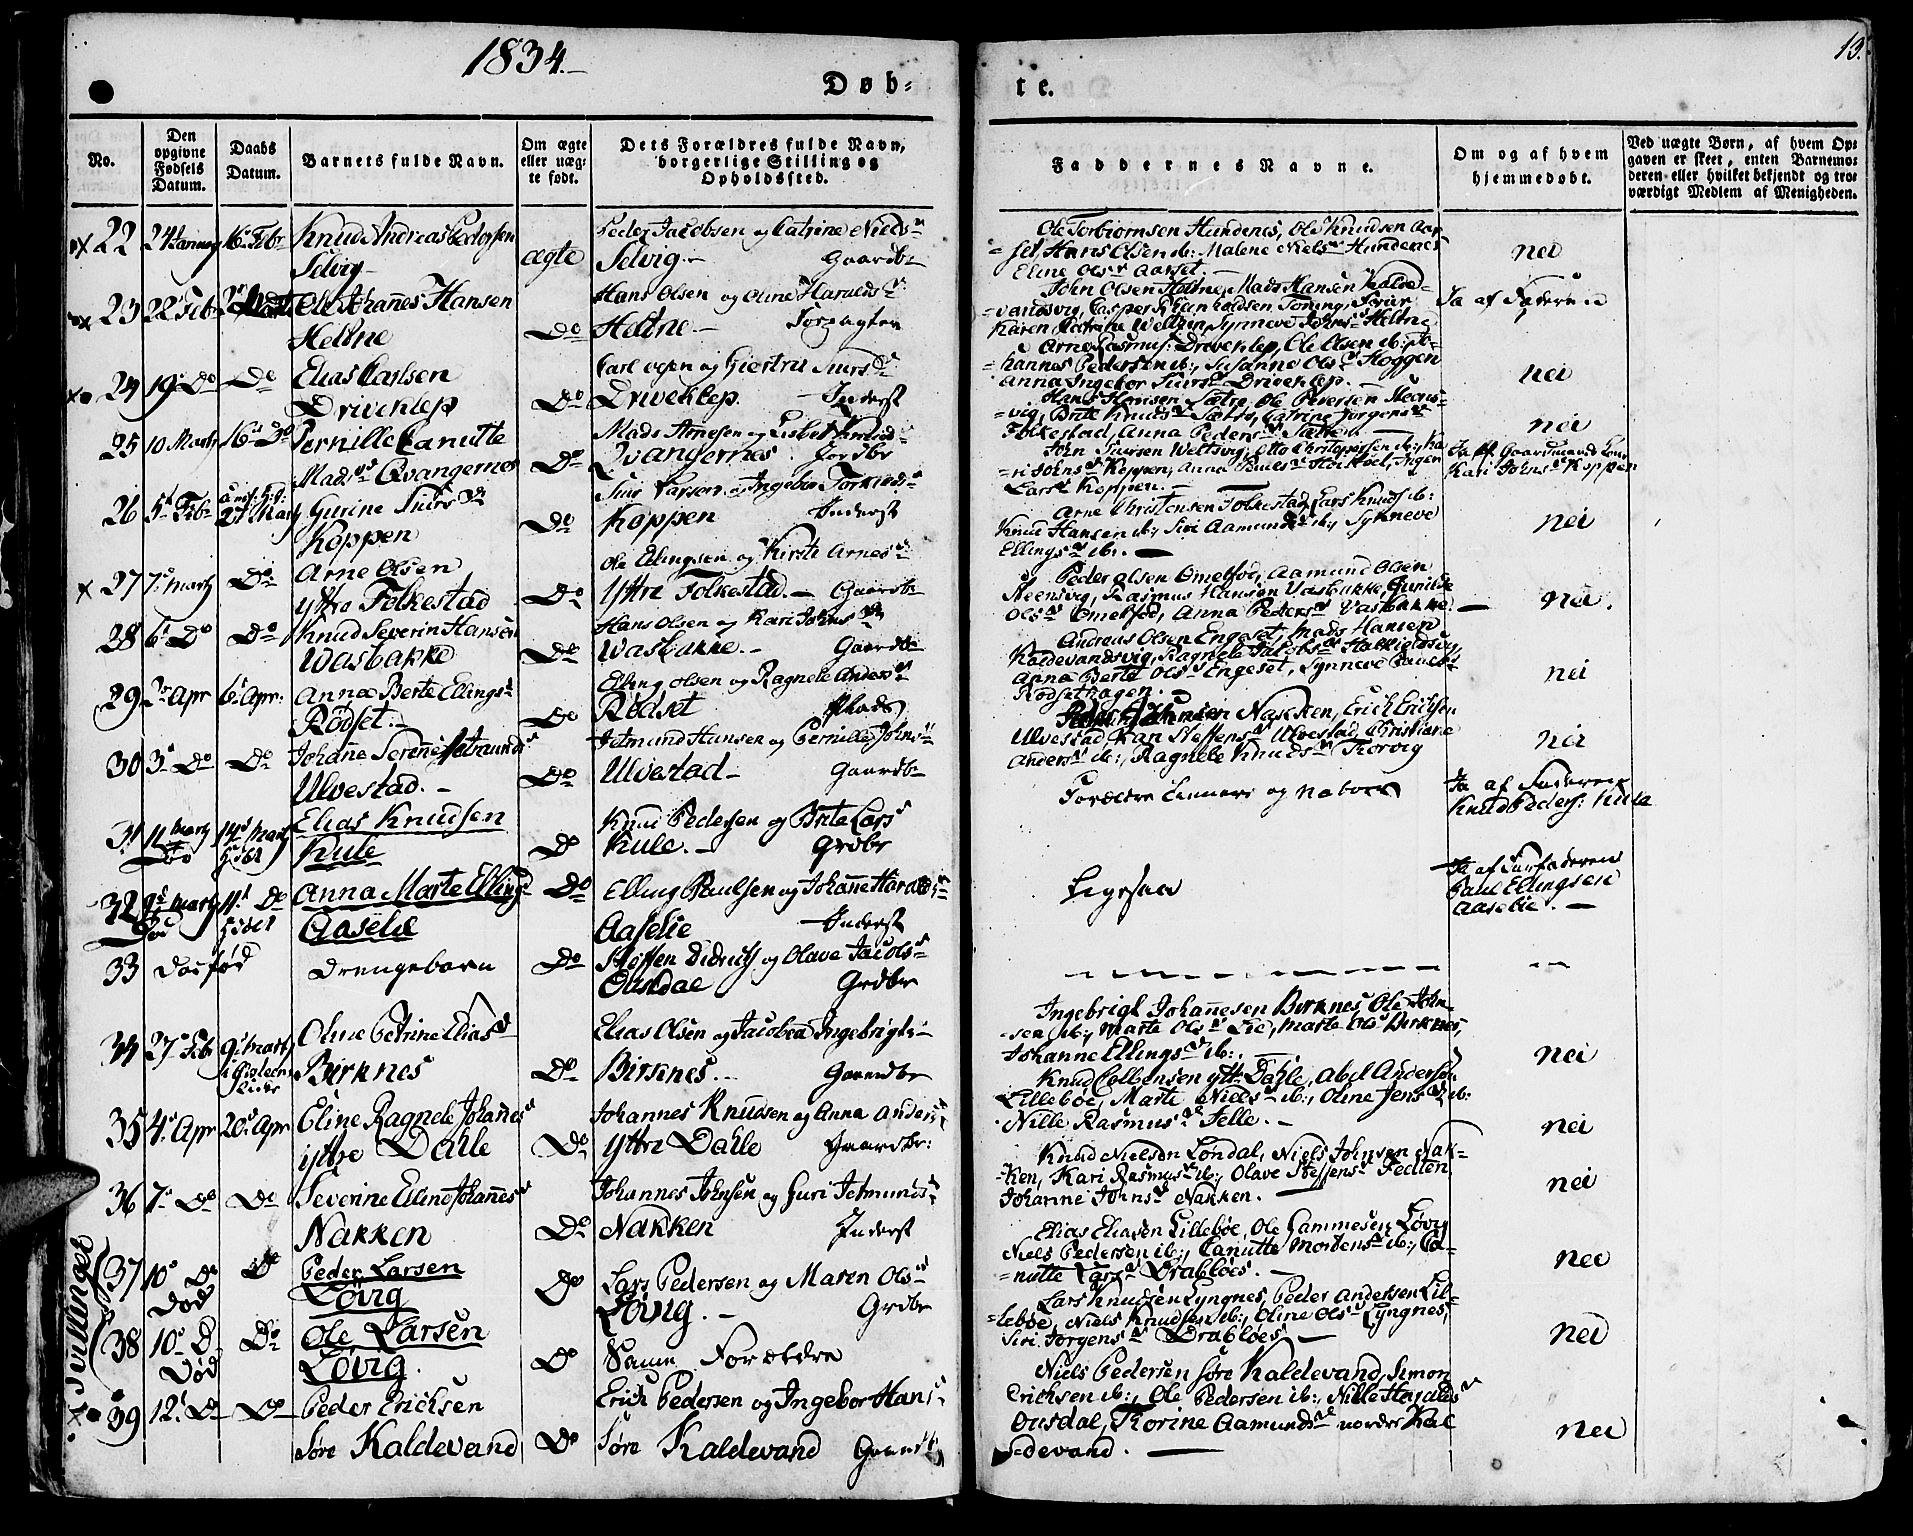 1834.
Døb-
te.
13.
No.
Den opgivne Fødsels Datum.
Daabs Datum.
Barnets fulde Navn.
Om ægte eller uægte født.
Dets Forældres fulde Navn, borgerlige Stilling og Opholdssted.
Faddernes Navne.
Om og af hvem hjemmedøbt.
Ved uægte Børn, af hvem Opgaven er skeet, enten Barnemoderen eller hvilket bekjendt og troværdigt Medlem af Menigheden.
22 24 Januar 16 Febr Knud Andreas Pedersen
Selvig
ægte
Peder Jacobsen og Catrine Niels
Selvig. Gaardb
Ole Torbiornsen Hundenes, Ole Knudsen Aar-
set, Hans Olsen ib: Malene Niels Hundenes
Eline Ols Aarset.
nei
23 22 Feb Ole Johannes Hansen
Heltne
Do
Hans Olsen og Oline Haralds
Heltne Forpagter
John Olsen Heltne, Mads Hansen Kalde-
vandsvig, Casper
Karen, Weltzin, Synneve Johns Heltne
Ja af Faderen
24 19 Do Do Elias Carlsen
Drivenlep
Do
Carl og Giertru Siurs
Drivenlep. Inderst
Arne Rasmus: Drivenlep, Ole Olsen ib: Jo-
hannes Pedersen ib:, Susanne Ols Hoggen
Anna Ingebor Siurs Drivenlep.
nei
25 10 Marts 16 Do Pernille Canutte
Mads Qvangernes
Do
Mads Arnesen og Lisbet Knuds
Qvangernes. Gordbr
Hans Hansen Sætre, Ole Petersen Steens-
vig, Brite Knuds Sætre, Catrine Jørgens
Folkestad, Anna Peders Sætre.
nei
26 5 Feb 27 Mars Gurine Siurs
Koppen
Do
Siur Larsen og Ingebor Torkields
Koppen Inderst
John Siursen Weltsvig, Otto Christophersen ib:, Ka-
ri Johns Koppen, Anna Pauls, Inger
Lars Koppen.
Ja af Gaardmands Kone
Kari Johns Koppen
27 7 Marts Do Arne Olsen
Yttre Folkestad
Do
Ole Ellingsen og Kirsti Arnes
Yttre Folkestad. Gaardb
Arne Christensen Folkestad, Lars Knuds ib:
Knud Hansen ib:, Siri Aamunds ib:, Synneve
Ellings ib:.
nei
28 6 Do Do Knud Severin Hansen
Wasbakke
Do
Hans Olsen og Kari Johns
Wasbakke. Gaardb
Peder Olsen Omelfod, Aamund Olsen
Steensvig, Rasmus Hansen Vasbakke, Gunilde
Ols Omelfod, Anna Peders Vasbakke.
nei.
29 2 Apr 6 Apr: Anna Berte Ellings
Rødset.
Do
Elling Olsen og Ragnele Anders
Rødset Plads
Andreas Olsen Engeset, Mads Hansen
Kaldevandsvig, Ragnele Jacobs
Anna Berte Ols Engeset, Synneve Pauls
Rødsethagen.
nei
30 3 Do Do Johanne Serenne Jetmunds
Ulvestad.
Do
Jetmund Hansen og Pernille Johns
Ulvestad Gaardb
Johnsen Nakken, Erich Erichsen
Ulvestad, Steffens Ulvestad, Christiane
Anders ib:, Ragnele Knuds Korvig
nei
31 11 Marts 14 Marts Elias Knudsen
Kule
Do
Knud Pedersen og Brite Lars
Kule. Grdbr
Forældre og Naboer
Ja af Faderen
Knud Peders: Kule
32 9 Marts 11 Do Anna Marte Ellings
Aaselie
Do
Elling Paulsen og Johanne Haralds
Aaselie Inderst
Ligesaa
Ja af Farfaderen
Paul Ellingsen
Aaselie.
33 Dødfød Drengebarn Do
Steffen Didrichs og Olave Jacobs
Ousdal Grdbr
34 27 Feb 9 Marts Oline Petrine Elias
Birknes
Do
Elias Olsen og Jacobea Ingebrigts
Birknes. Gaardbr
Ingebrigt Johannesen Birknes, Ole John-
sen ib:, Marte Ols Lie, Marte Ols Birknes,
Johanne Ellings ib:.
nei
35 4 Apr 20 Apr Eline Ragnele Johannes
ytre Dahle
Do
Johannes Knudsen og Anna Anders
Yttre Dahle Gaardbr:
Knud Colbensen ytt: Dahle, Abel Andersen
Lillebøe, Marte Niels ib:, Oline Jens ib:
Nille Rasmus Felle.
nei
36 7 Do Do Severine Eline Johannes
Nakken
Do
Johannes Johnsen og Guri Jetmunds
Nakken Inderst
Knud Nielsen Londal, Niels Johnsen Nak-
ken, Kari Rasmus ib:, Olave Steffens Fedten,
Johanne Johns Nakken.
nei
Tvillinger
37 10 Do Do Peder Larsen
Død
Løvig
Do
Lars Pedersen og Maren Ols
Løvig. Grdbr
Elias Eliasen Lillebøe, Ole Sammesen Løvig
Niels Pedersen ib:, Canutte Mortens ib:, Ca-
nutte Lars Drabløes.
nei
38 10 D Do Ole Larsen
Død
Løvig.
Do
Samme Forældre
Lars Knudsen Lyngnes, Peder Andersen Lil-
lebøe, Niels Knudsen ib:, Oline Ols Lyngnes,
Siri Jørgens Drabløes
nei
39 12 Do Do Peder Erichsen
Søre Kaldevand
Do
Erich Pedersen og Ingebor Hans
Søre Kaldevand Gaardb
Niels Pedersen søre Kaldevand, Simon
Erichsen ib:, Ole Pedersen ib:, Nille Haralds
Ousdal, Korine Aamunds nordre Kal-
devand.
nei